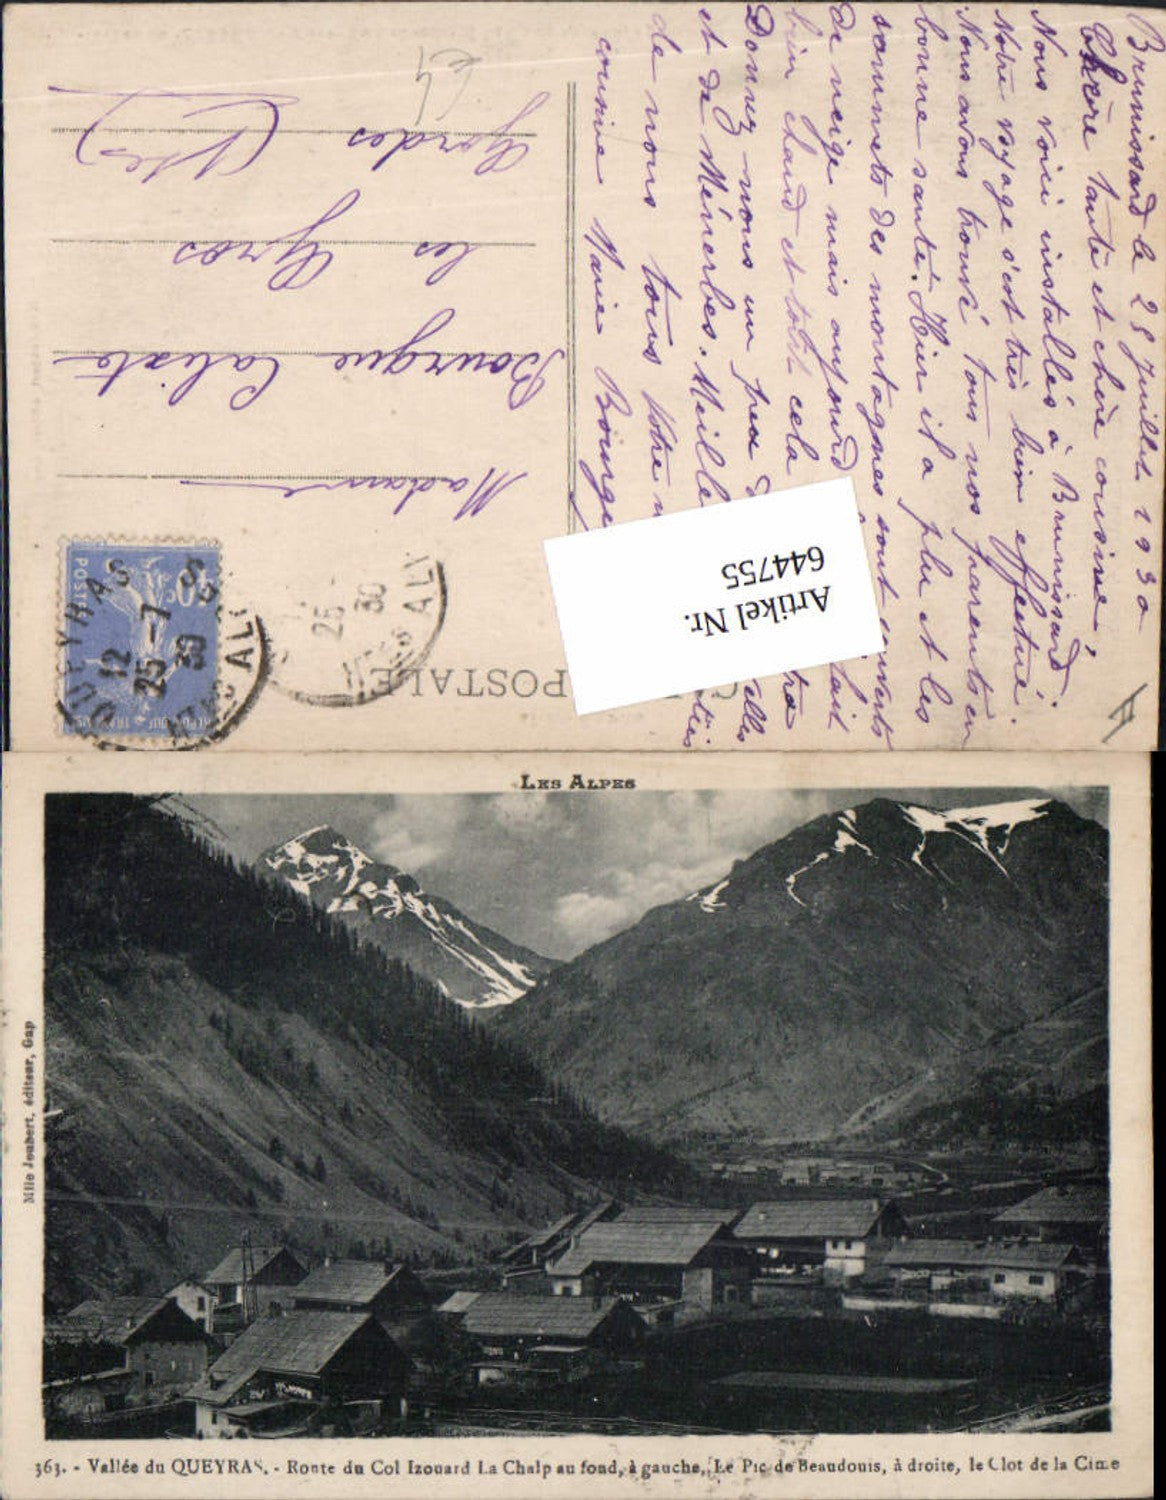 Brunissard le 28 juillet 1930
Chère tante et chère cousine,
Nous voici installés à Brunissard.
Notre voyage s'est très bien effectué.
Nous avons trouvé tous nos parents en
bonne santé. Hier il a plu et les
sommets des montagnes sont couverts
de neige mais aujourd fait
bien chaud et tout cela
Donnez nous un peu d elles
et de Ménerbes. Meille
de nous tous Votre n
cousine Marie Bourgue
Madame
Bourgue Caliste
les Gros
Gordes
POSTALE
Artikel Nr.
644755
POSTES
40c
QUEYRAS
12
25-7
30
25
30
LES ALPES
Mlle Joubert, éditeur, Gap
363. - Vallée du QUEYRAS. - Route du Col Izouard La Chalp au fond, à gauche, Le Pic de Beaudouis, à droite, le Clot de la Cime